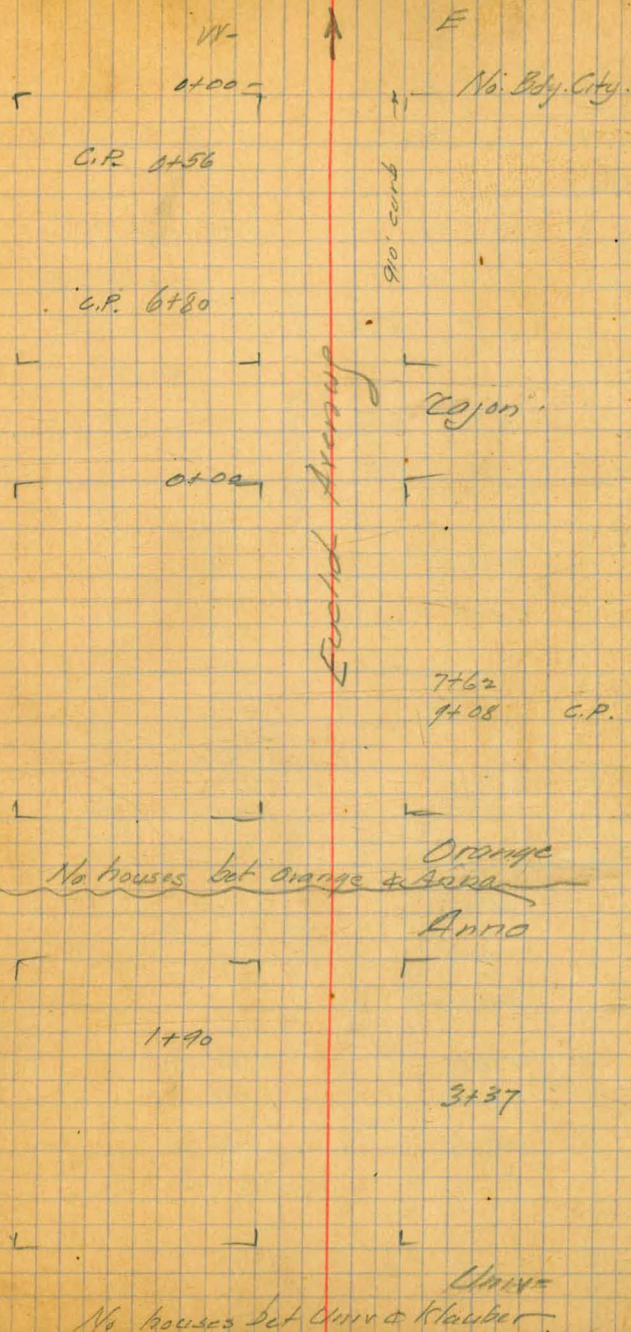 W- E
0+00 = No. Bdy. City.
C.P. 0+56
910' curb
C.P. 6+80
Euclid Avenue
Cajon.
0+00
7+62
9+08 C.P.
Orange
No houses bet Orange & Anna
Anno
1+90
3+37
Univ=
No houses bet Univ & Klauber